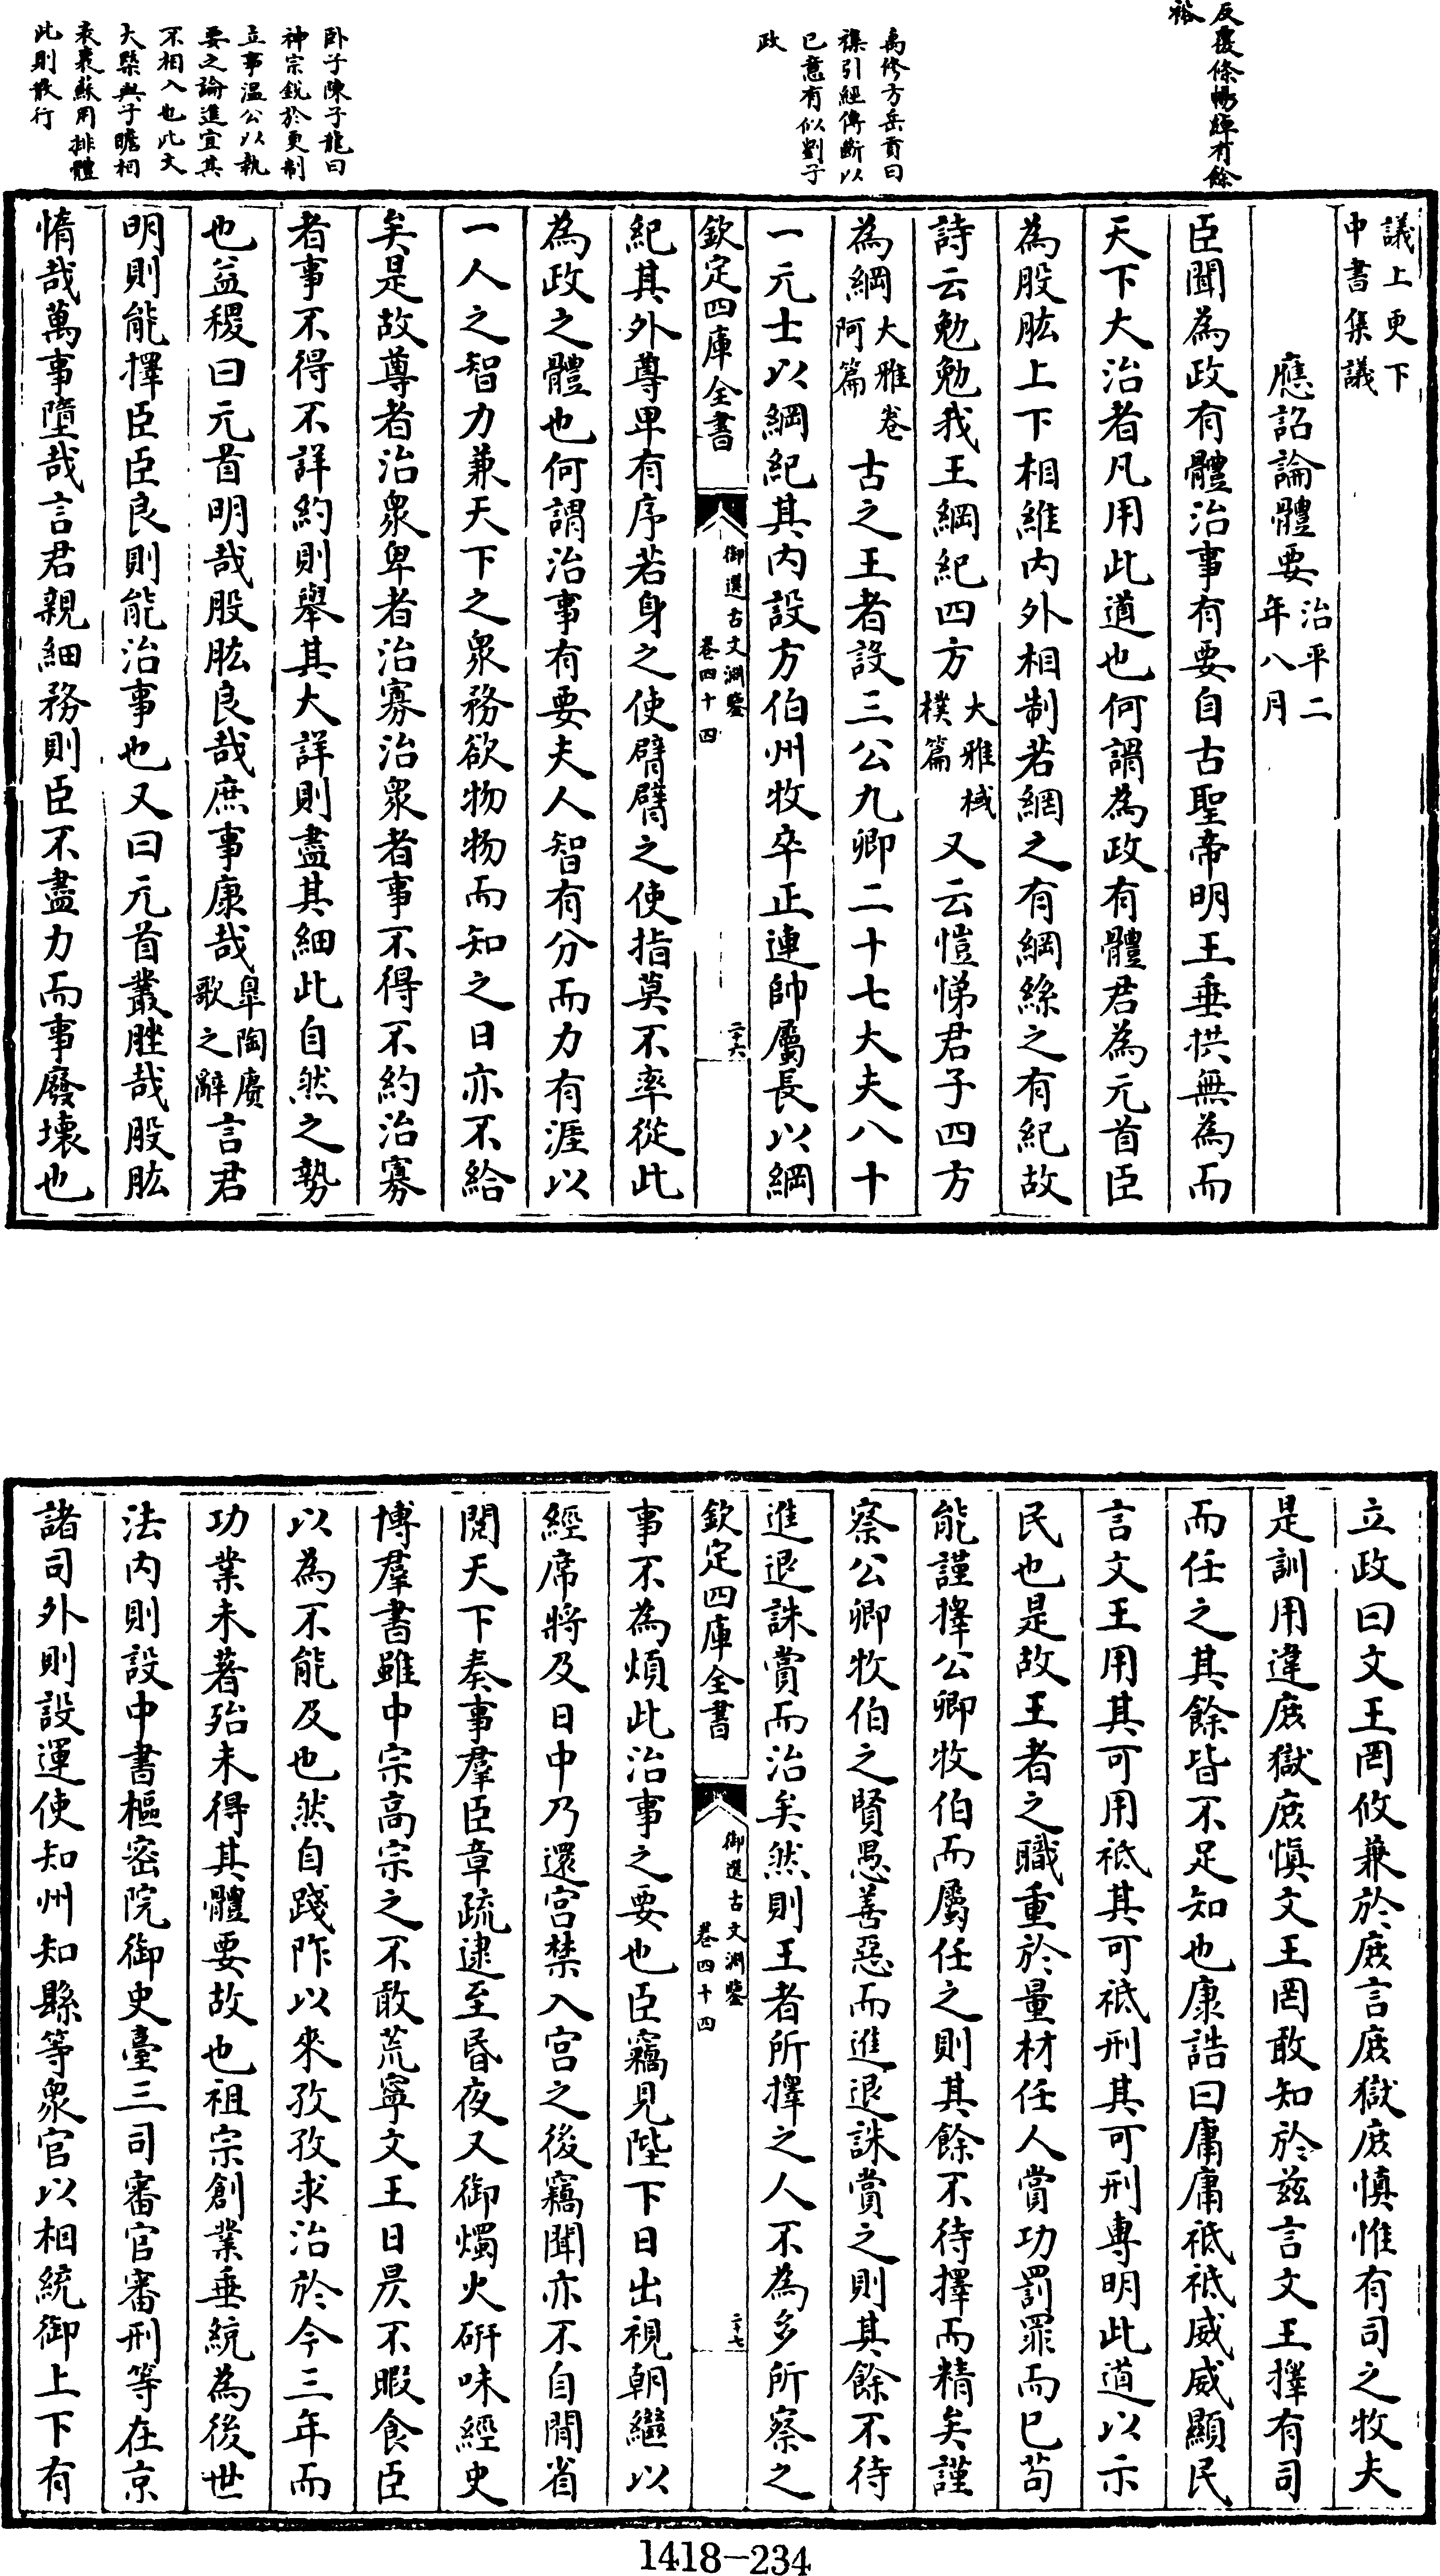 反覆條暢綽有餘
裕
禹修方岳貢曰
襍引經傳斷以
已意有似劉子
政
卧子陳子龍曰
神宗銳於更制
立事溫公以執
要之論進宜其
不相入也此文
大槩與子瞻相
表裏蘇用排體
此則散行
議上更下
中書集議
應詔論體要治平二年八月
臣聞為政有體治事有要自古聖帝明王垂拱無為而
天下大治者凡用此道也何謂為政有體君為元首臣
為股肱上下相維內外相制若網之有綱絲之有紀故
詩云勉勉我王綱紀四方大雅棫樸篇又云愷悌君子四方
為綱大雅卷阿篇古之王者設三公九卿二十七大夫八十
一元士以綱紀其內設方伯州牧卒正連帥屬長以綱
欽定四庫全書
御選古文淵鑒
卷四十四
二十六
紀其外尊卑有序若身之使臂臂之使指莫不率從此
為政之體也何謂治事有要夫人智有分而力有涯以
一人之智力兼天下之衆務欲物物而知之日亦不給
矣是故尊者治衆卑者治寡治衆者事不得不約治寡
者事不得不詳約則舉其大詳則盡其細此自然之勢
也益稷曰元首明哉股肱良哉庶事康哉皐陶賡歌之辭言君
明則能擇臣臣良則能治事也又曰元首叢脞哉股肱
惰哉萬事墮哉言君親細務則臣不盡力而事廢壞也
立政曰文王罔攸兼於庶言庶獄庶慎惟有司之牧夫
是訓用違庶獄庶慎文王罔敢知於茲言文王擇有司
而任之其餘皆不足知也康誥曰庸庸祗祗威威顯民
言文王用其可用祗其可祗刑其可刑專明此道以示
民也是故王者之職重於量材任人賞功罰罪而已苟
能謹擇公卿牧伯而屬任之則其餘不待擇而精矣謹
察公卿牧伯之賢愚善惡而進退誅賞之則其餘不待
進退誅賞而治矣然則王者所擇之人不為多所察之
欽定四庫全書
御選古文淵鑒
卷四十四
二十七
事不為煩此治事之要也臣竊見陛下日出視朝繼以
經席將及日中乃還宮禁入宮之後竊聞亦不自閒省
閱天下奏事羣臣章疏逮至昏夜又御燭火研味經史
博羣書雖中宗高宗之不敢荒寧文王日昃不暇食臣
以為不能及也然自踐阼以來孜孜求治於今三年而
功業未著殆未得其體要故也祖宗創業垂統為後世
法內則設中書樞密院御史臺三司審官審刑等在京
諸司外則設運使知州知縣等衆官以相統御上下有
1418-234